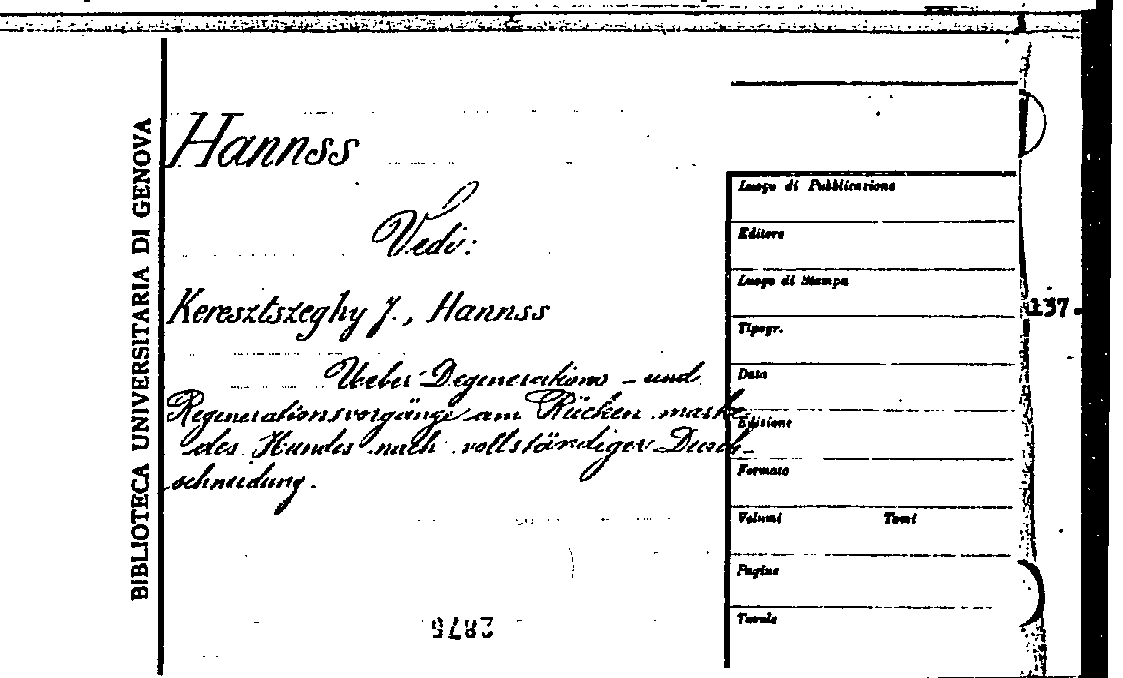 BIBLIOTECA UNIVERSITARIA DI GENOVA
Hannss
Vedi:
Keresztszeghy J., Hannss
Ueber Degenerations - und
Regenerationsvorgänge am Rücken marke
des Hundes nach vollständiger Durch-
schneidung.
Luogo di Pubblicazione
Editore
Luogo di Stampa
Tipogr.
Data
Edizione
Formato
Volumi Tomi
Pagine
Tavole
137.